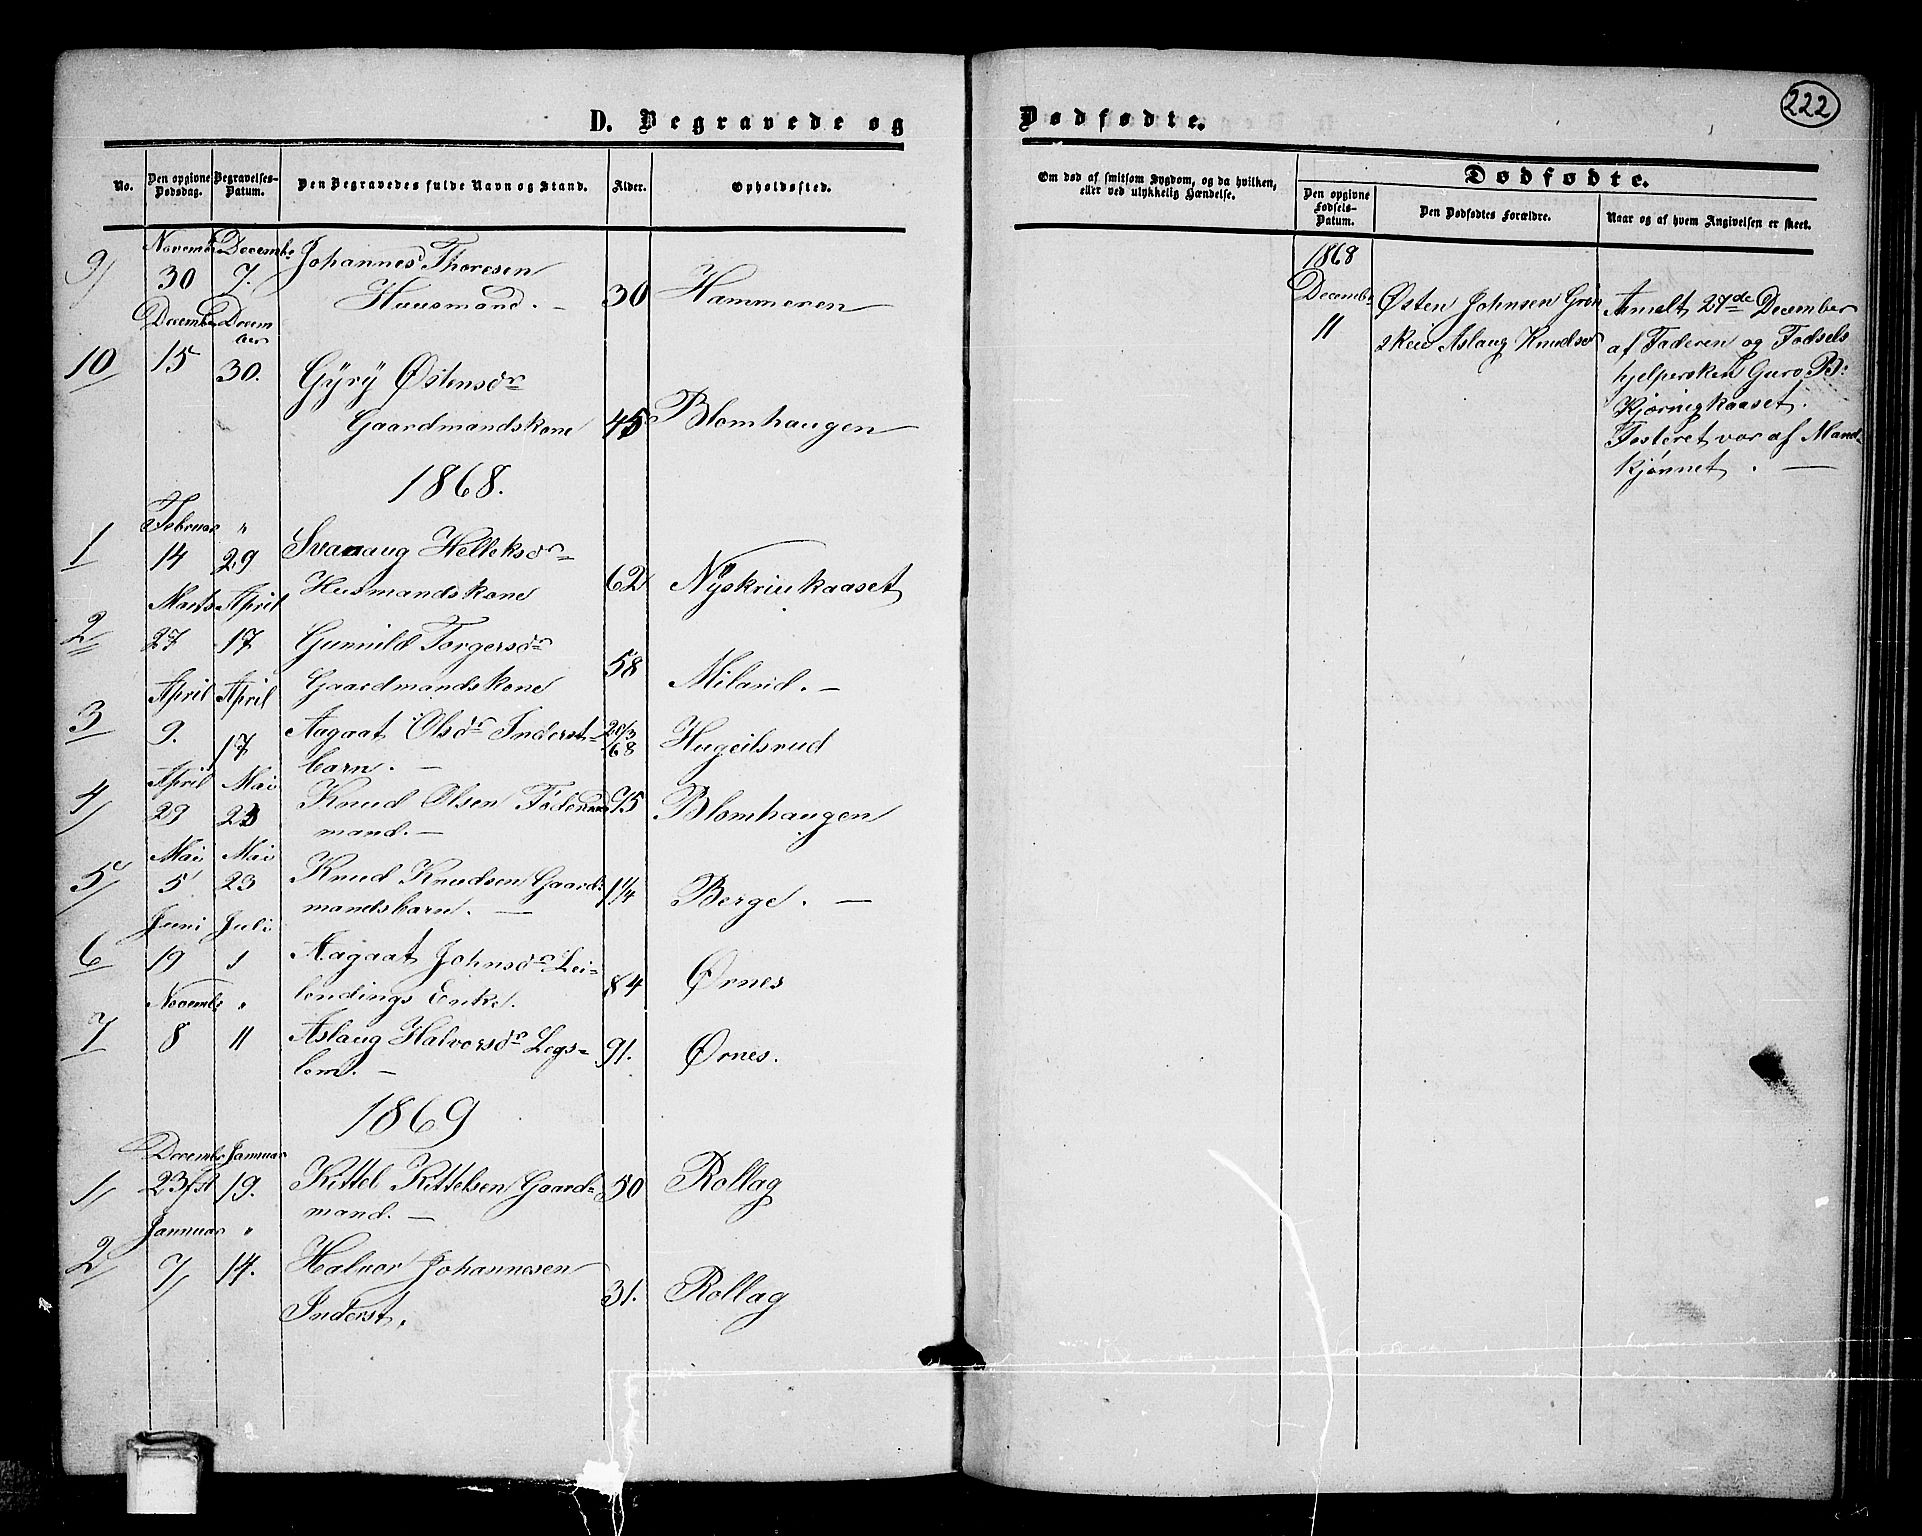 222
D. Begravede og Dødfødte.
No. Den opgivne Dødsdag. Begravelses-Datum. Den Begravedes fulde Navn og Stand. Alder. Opholdssted.
Novemb Decembr Johannes Thoresen
9) 30 7. Huusmand. — 30 Hammeren
Decembr Decem
ber
10 15 30. Gÿrÿ Østensdr
Gaardmandskone 45 Blomhaugen
1868.
Februar "
1 14 29 Svanaug Helleksdr
Husmandskone 62 Nÿskriukaaset
Marts April
2 27 17 Gunnild Torgersdr
Gaardmandskone 58 Miland. —
April April
3 9. 17 Aagaat Olsdr Inderst-
barn. — 20/3 68 Hugeilsrud
April Mai
4/ 29 23 Knud Olsen
mand. — 75 Blomhaugen
Mai Mai
5/ 5 23 Knud Knudsen Gaard-
mandsbarn. — 1 1/4 Berge. —
Juni Juli
6 19 1 Aagaat Johnsdr Lei-
lendings Enke. 84 Ørnes
Novembr "
7 8 11 Aslaug Halvorsdr Legs-
lem. — 91. Ørnes.
1869
Decembr Januar
1/ 23/ 19. Kittel Kittelsen Gaard-
mand. — 50 Rollag
Januar "
2/ 7/ 14. Halvor Johannesen
Inderst. 31. Rollag
Om død af smitsom Sygdom, og da hvilken,
eller ved ulykkelig Hændelse.
Dødfødte.
Den opgivne Fødsels-Datum. Den Dødfødtes Forældre. Naar og af hvem Angivelsen er skeet.
1868
Decembr
11
Østen Johnsen Grøn
skei Aslaug Knudsdr
Anmelt 27de December
af Faderen og Fødsels
hjelpersken Guro B:
Kjørnegkaaset.
Fosteret var af Mand-
kjønnet. —